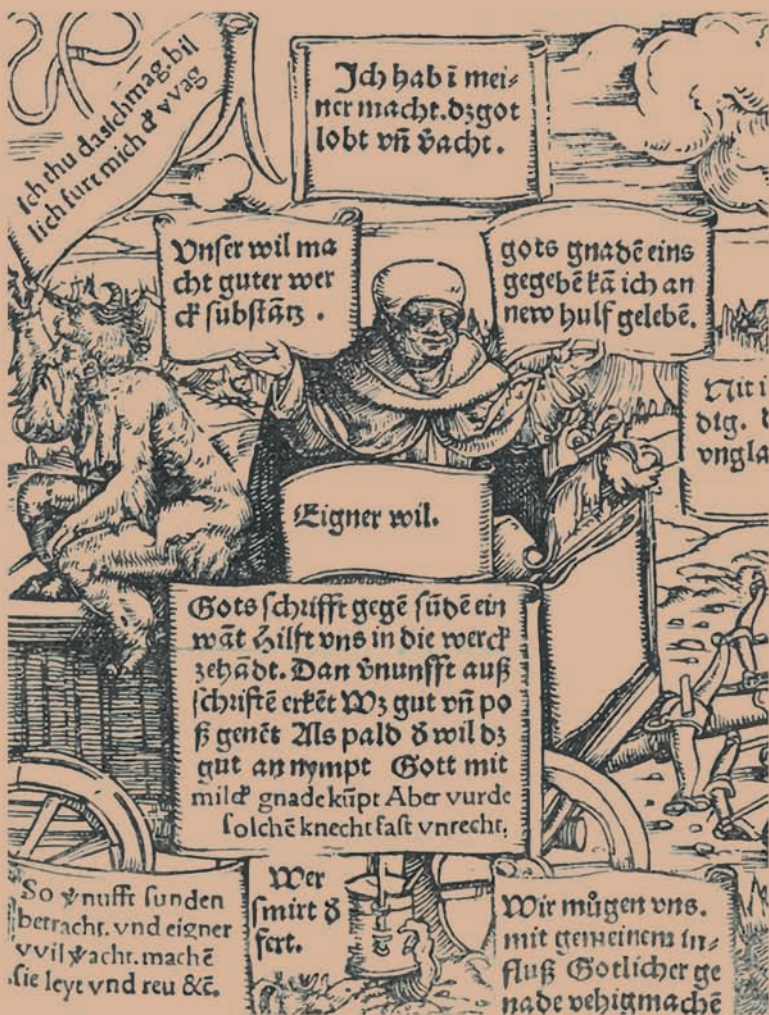 Ich thu das ich mag. bil
lich furt mich đ vvag
Ich hab ī mei⸗
ner macht. dz got
lobt vn̄ v̄acht.
Vnser wil ma
cht guter wer
ck substātz .
gots gnadē eins
gegebē kā ich an
new hulf gelebē.
Nit i
dig.
vngla
Eigner wil.
Gots schrifft gegē sūdē ein
wāt Hilft vns in die werck
zehādt. Dan v̄nunfft auß
schriftē erkēt Wz gut vn̄ po
ß genēt Als pald đ wil dz
gut an nympt Gott mit
milđ gnade kūpt Aber vurde
solchē knecht fast vnrecht.
So v̄nufft sunden
betracht. vnd eigner
vvil v̄acht. machē
sie leyt vnd reu &c̄.
Wer
smirt đ
fert.
Wir můgen vns.
mit gemeinem in⸗
fluß Gotlicher ge
nade vehig machē